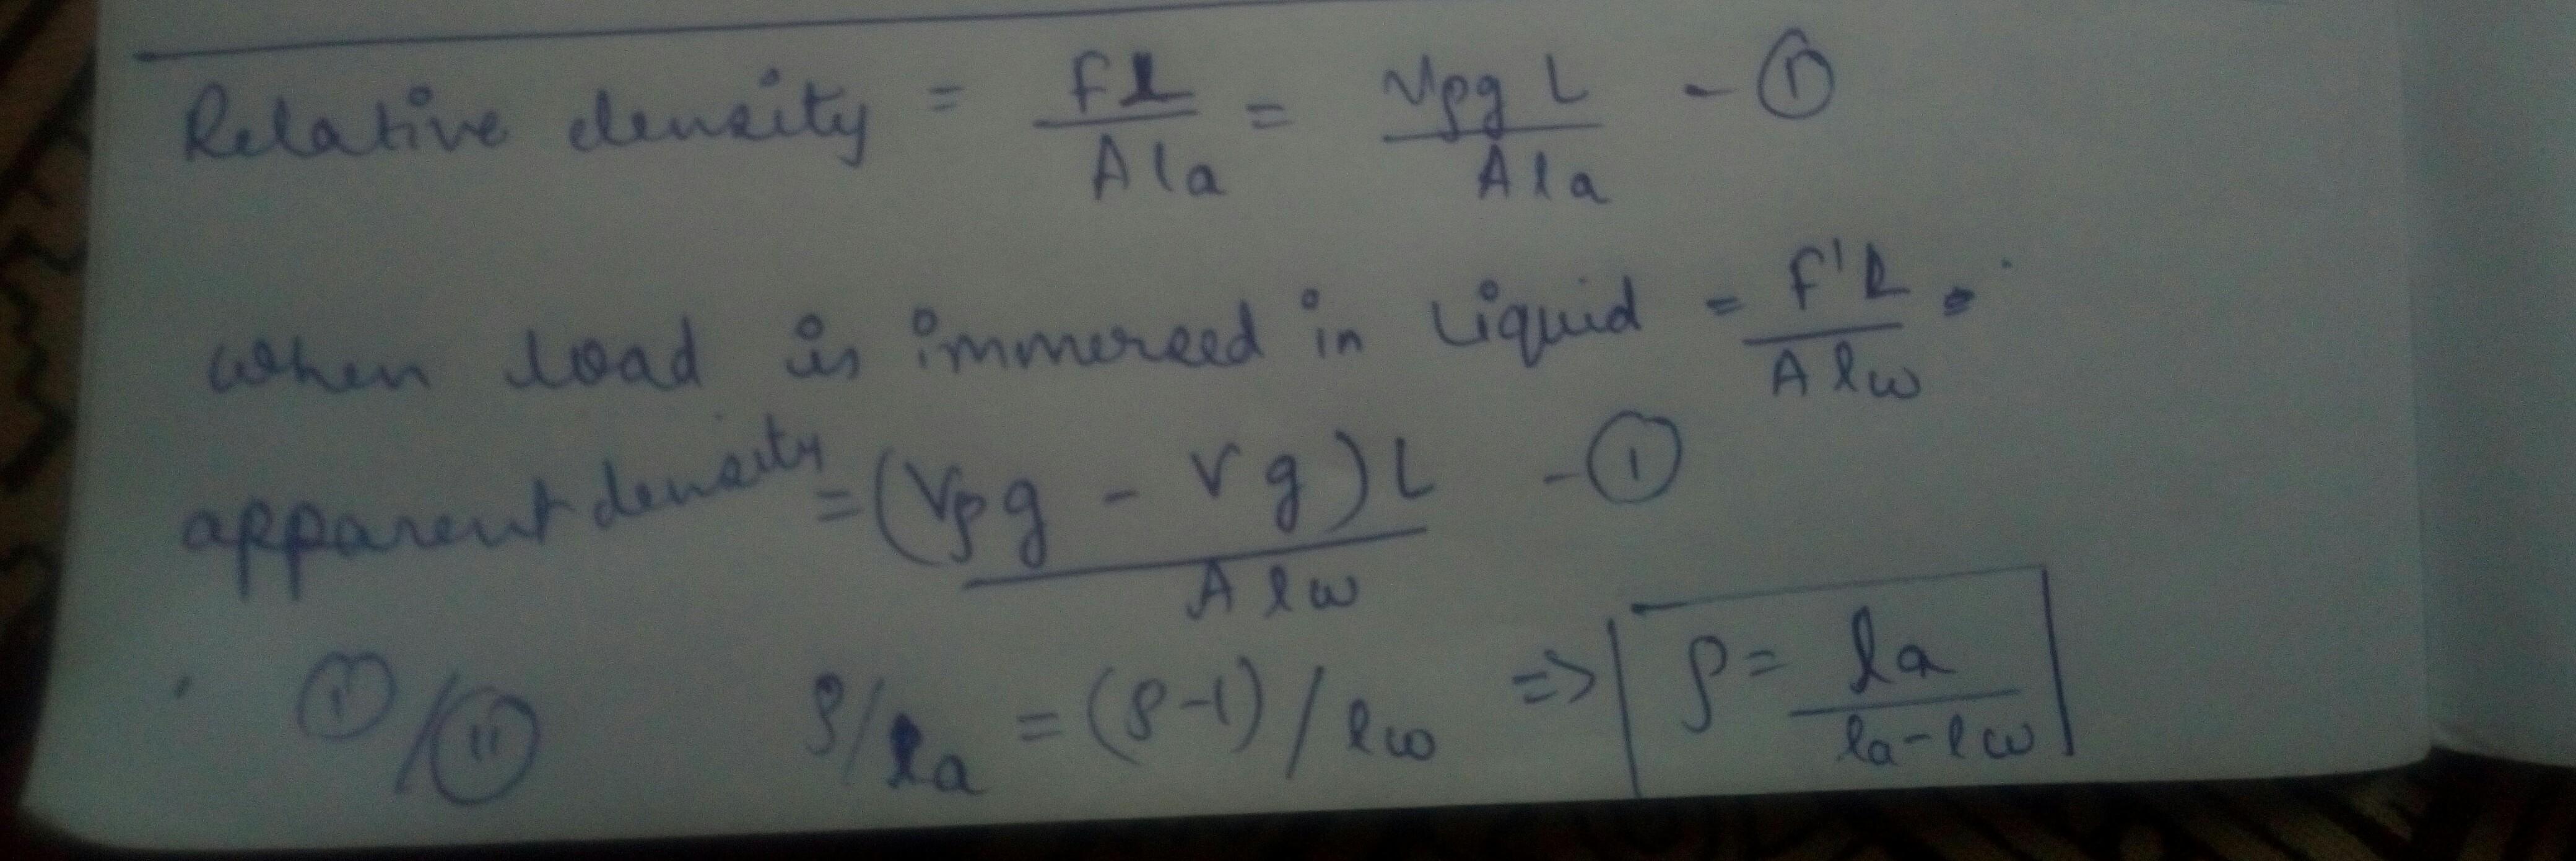 Relative density = FL / A la = Vρg L / A la - (I)
when load is immersed in liquid = F'L / A lw =
apparent density = (Vρg - Vg)L / A lw - (I)
(I)/(II) ρ/la = (ρ-1)/lw => ρ = la / la-lw